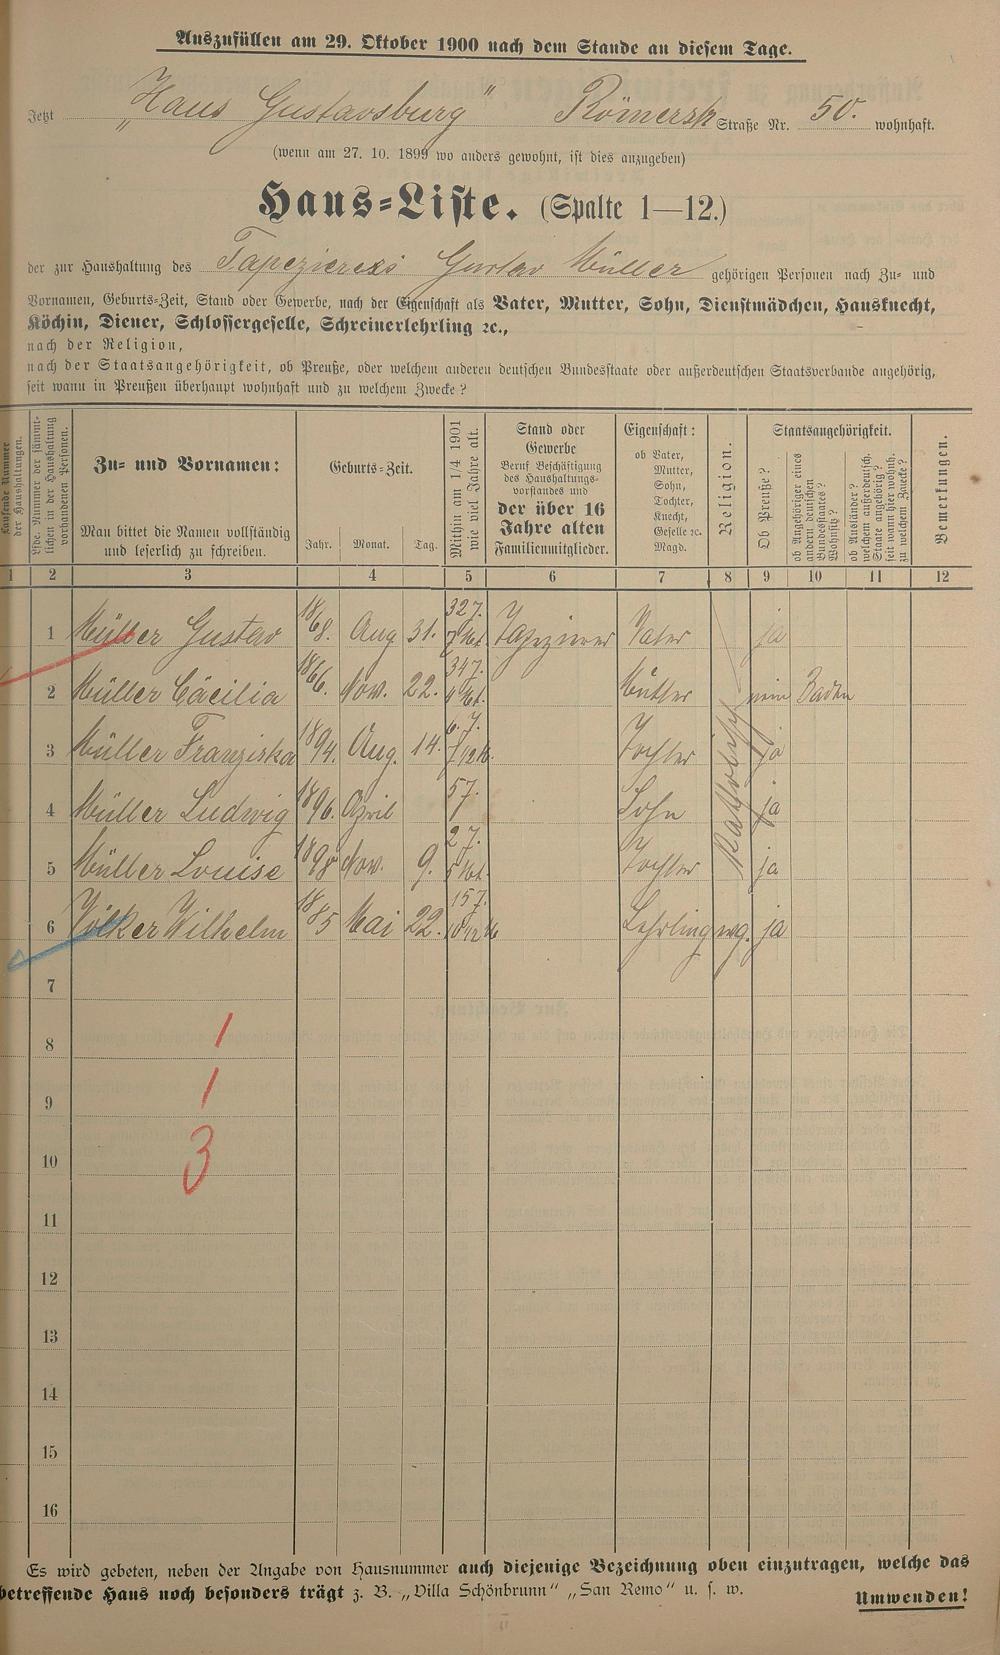 Auszufüllen am 29. Oktober 1900 nach dem Stande an diesem Tage.
Jetzt „Haus Gustavsburg" Römerstr Straße Nr. 50. wohnhaft.
(wenn am 27. 10. 1899 wo anders gewohnt, ist dies anzugeben)
Haus-Liste. (Spalte 1—12.)
der zur Haushaltung des Tapezierers Gustav Müller gehörigen Personen nach Zu- und
Vornamen, Geburts-Zeit, Stand oder Gewerbe, nach der Eigenschaft als Vater, Mutter, Sohn, Dienstmädchen, Hausknecht,
Köchin, Diener, Schlossergeselle, Schreinerlehrling ꝛc.,
nach der Religion,
nach der Staatsangehörigkeit, ob Preuße, oder welchem anderen deutschen Bundesstaate oder außerdeutschen Staatsverbande angehörig,
seit wann in Preußen überhaupt wohnhaft und zu welchem Zwecke?
Laufende Nummer der Haushaltungen.
Lfde. Nummer der sämmtlichen in der Haushaltung vorhandenen Personen.
Zu- und Vornamen:
Man bittet die Namen vollständig
und leserlich zu schreiben.
Geburts-Zeit.
Jahr. Monat. Tag.
Mithin am 1/4 1901 wie viel Jahre alt.
Stand oder
Gewerbe
Beruf Beschäftigung
des Haushaltungs-
vorstandes und
der über 16
Jahre alten
Familienmitglieder.
Eigenschaft:
ob Vater,
Mutter,
Sohn,
Tochter,
Knecht,
Geselle ꝛc.
Magd.
Religion.
Staatsangehörigkeit.
Ob Preuße?
ob Angehöriger eines andern deutschen Bundesstaates? Wohnsitz?
ob Ausländer? welchem außerdeutsch. Staate angehörig? seit wann hier wohnh. zu welchem Zwecke?
Bemerkungen.
1 2 3 4 5 6 7 8 9 10 11 12
1 Müller Gustav 1868. Aug 31. 32 J. 7 Mt. Tapezierer Vater ja
2 Müller Cäcilia 1866. Nov. 22. 34 J. 4 Mt. Mutter nein Baden
3 Müller Franziska 1894. Aug. 14. 6 J. Tochter ja
4 Müller Ludwig 1896. April 5 J. Sohn ja
Katholisch
5 Müller Louise 1898 Nov. 9. 2 J. 5 Mt. Tochter ja
6 Völker Wilhelm 1885 Mai 22. 15 J. Lehrling evg. ja
7
8
1
9
1
10
3
11
12
13
14
15
16
Es wird gebeten, neben der Angabe von Hausnummer auch diejenige Bezeichnung oben einzutragen, welche das
betreffende Haus noch besonders trägt z. B. „Villa Schönbrunn" „San Remo" u. s. w.
Umwenden!